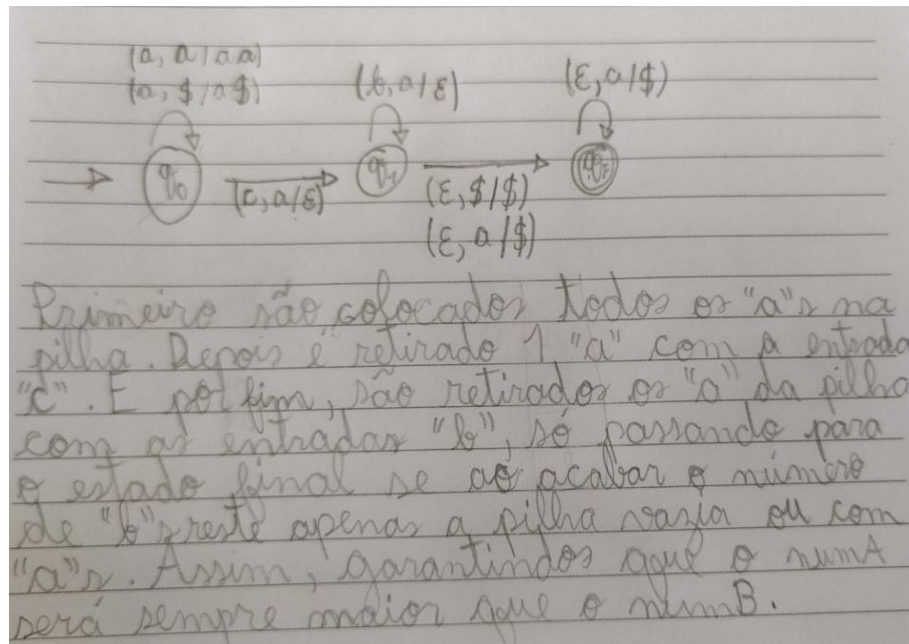 (a, a / aa)
(a, $ / a$) (b, a / ε) (ε, a / $)
q0 (c, a / ε) q1 (ε, $ / $) qF
(ε, a / $)
Primeiro são colocados todos os "a"s na
pilha. Depois é retirado 1 "a" com a entrada
"c". E por fim, são retirados os "a" da pilha
com as entradas "b", só passando para
o estado final se ao acabar o número
de "b"s reste apenas a pilha vazia ou com
"a"s. Assim, garantindos que o numA
será sempre maior que o numB.